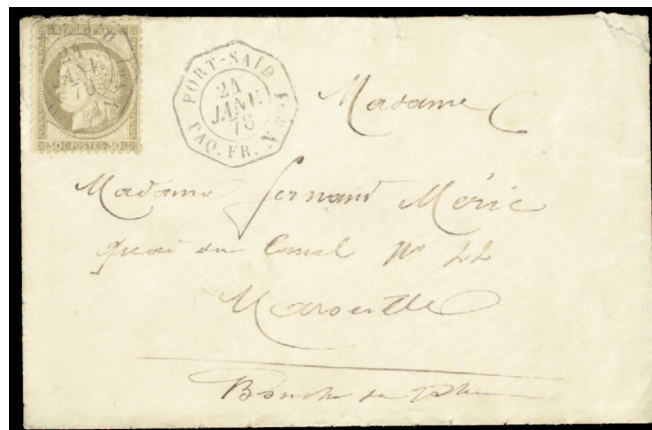 REPUB. FRANC.
30 C. POSTES 30 C.
PORT-SAID
24
JANV.
78
PAQ. FR. N No 1
Madame
Madame Fernand Méric
quai du Canal No 22
Marseille
Bouches du Rhône